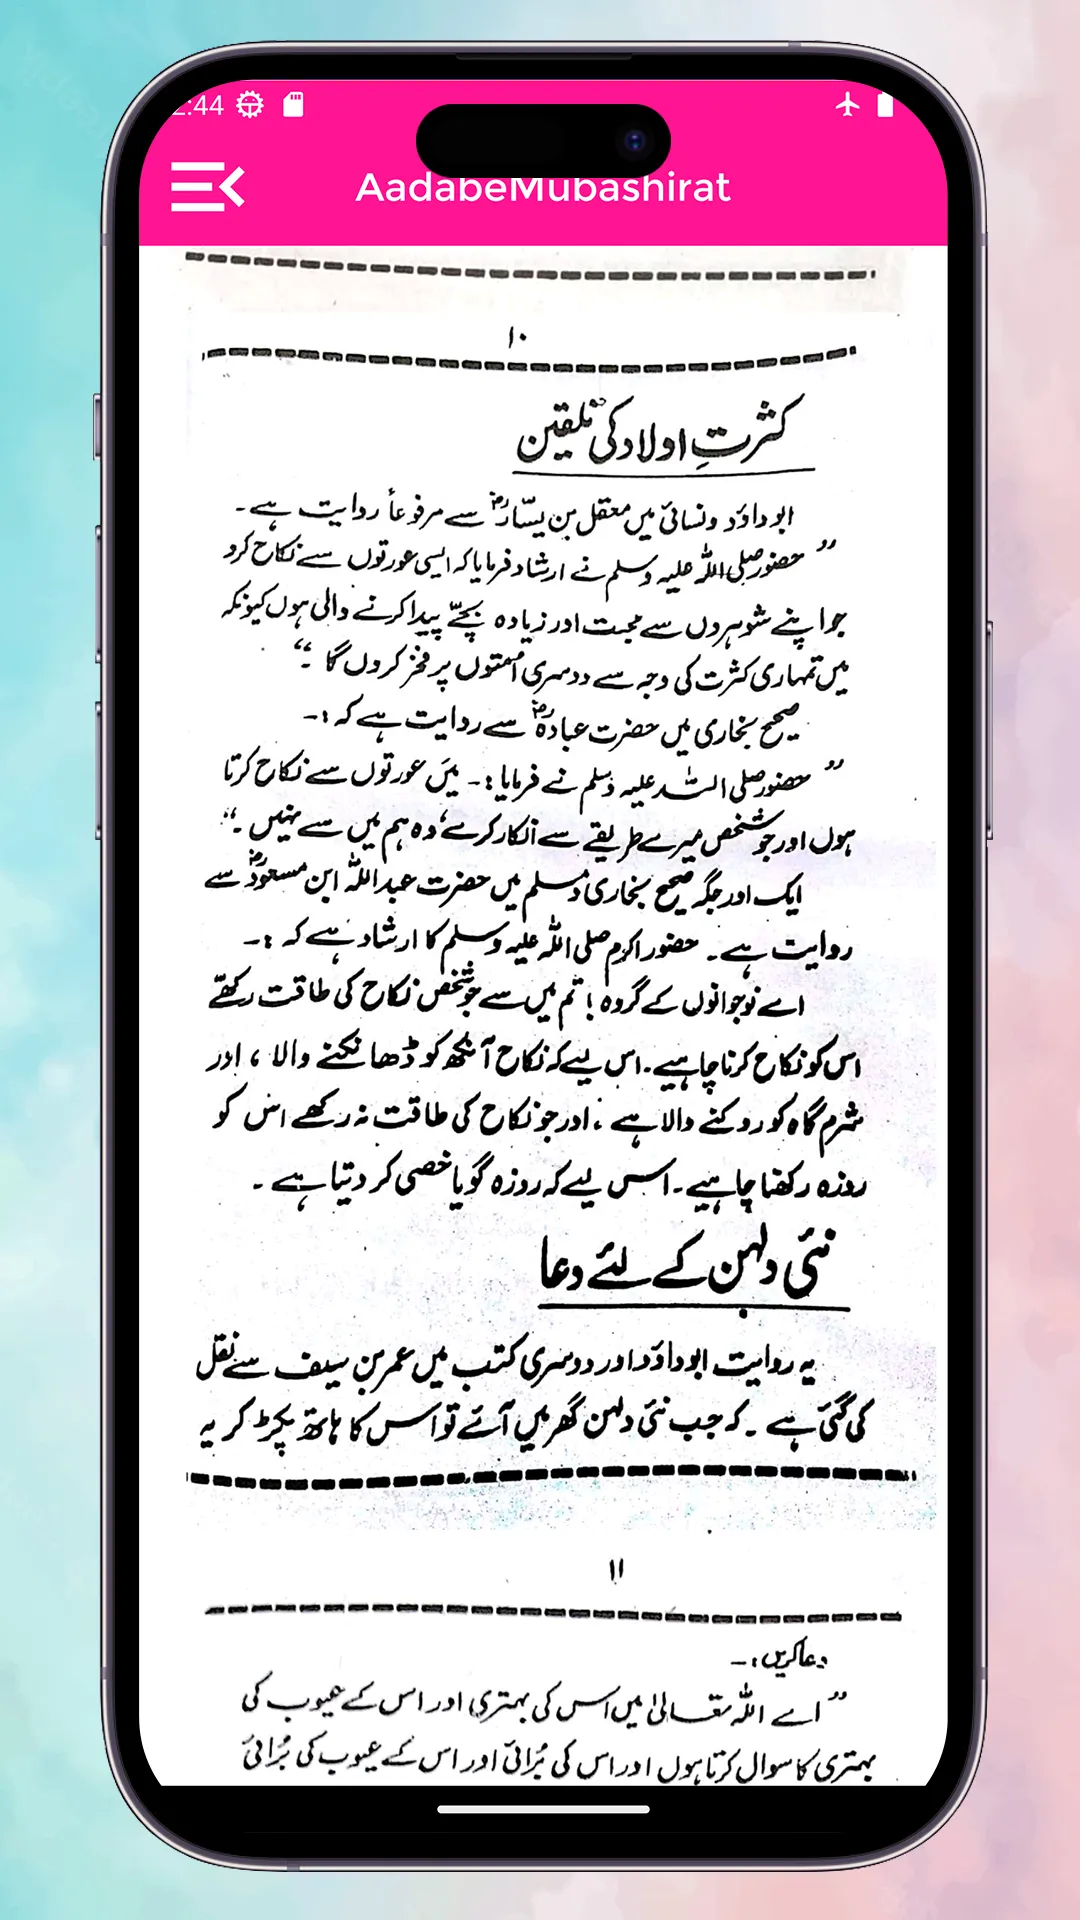 2:44
AadabeMubashirat
۱۰
کثرتِ اولاد کی تلقین
ابو داؤد ونسائی میں معقل بن یسّارؓ سے مرفوعاً روایت ہے۔
”حضور صلی اللہ علیہ وسلم نے ارشاد فرمایا کہ ایسی عورتوں سے نکاح کرو
جو اپنے شوہروں سے محبت اور زیادہ بچّے پیدا کرنے والی ہوں کیونکہ
میں تمہاری کثرت کی وجہ سے دوسری اُمتوں پر فخر کروں گا۔“
صحیح بخاری میں حضرت عبادہؓ سے روایت ہے کہ :۔
”حضور صلی اللہ علیہ وسلم نے فرمایا :۔ میں عورتوں سے نکاح کرتا
ہوں اور جو شخص میرے طریقے سے انکار کرے، وہ ہم میں سے نہیں۔“
ایک اور جگہ صحیح بخاری و مسلم میں حضرت عبداللہ ابن مسعودؓ سے
روایت ہے۔ حضور اکرم صلی اللہ علیہ وسلم کا ارشاد ہے کہ :۔
اے نوجوانوں کے گروہ ! تم میں سے جو شخص نکاح کی طاقت رکھے
اس کو نکاح کرنا چاہیے۔ اس لیے کہ نکاح آنکھ کو ڈھانکنے والا ، اور
شرم گاہ کو روکنے والا ہے ، اور جو نکاح کی طاقت نہ رکھے اس کو
روزہ رکھنا چاہیے۔ اس لیے کہ روزہ گویا خصی کر دیتا ہے ۔
نئی دلہن کے لئے دعا
یہ روایت ابو داؤد اور دوسری کتب میں عمر بن سیف سے نقل
کی گئی ہے ۔ کہ جب نئی دلہن گھر میں آئے تو اس کا ہاتھ پکڑ کر یہ
۱۱
دعا کریں :۔
”اے اللہ تعالیٰ میں اس کی بہتری اور اس کے عیوب کی
بہتری کا سوال کرتا ہوں اور اس کی بُرائی اور اس کے عیوب کی بُرائی